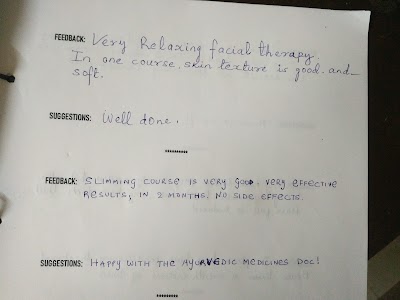 FEEDBACK: Very Relaxing facial therapy.
In one course, skin texture is good and
soft.
SUGGESTIONS: Well done.
**********
FEEDBACK: SLIMMING COURSE IS VERY GOOD. VERY EFFECTIVE
RESULTS, IN 2 MONTHS. NO SIDE EFFECTS.
SUGGESTIONS: HAPPY WITH THE AYURVEDIC MEDICINES DOC!
**********